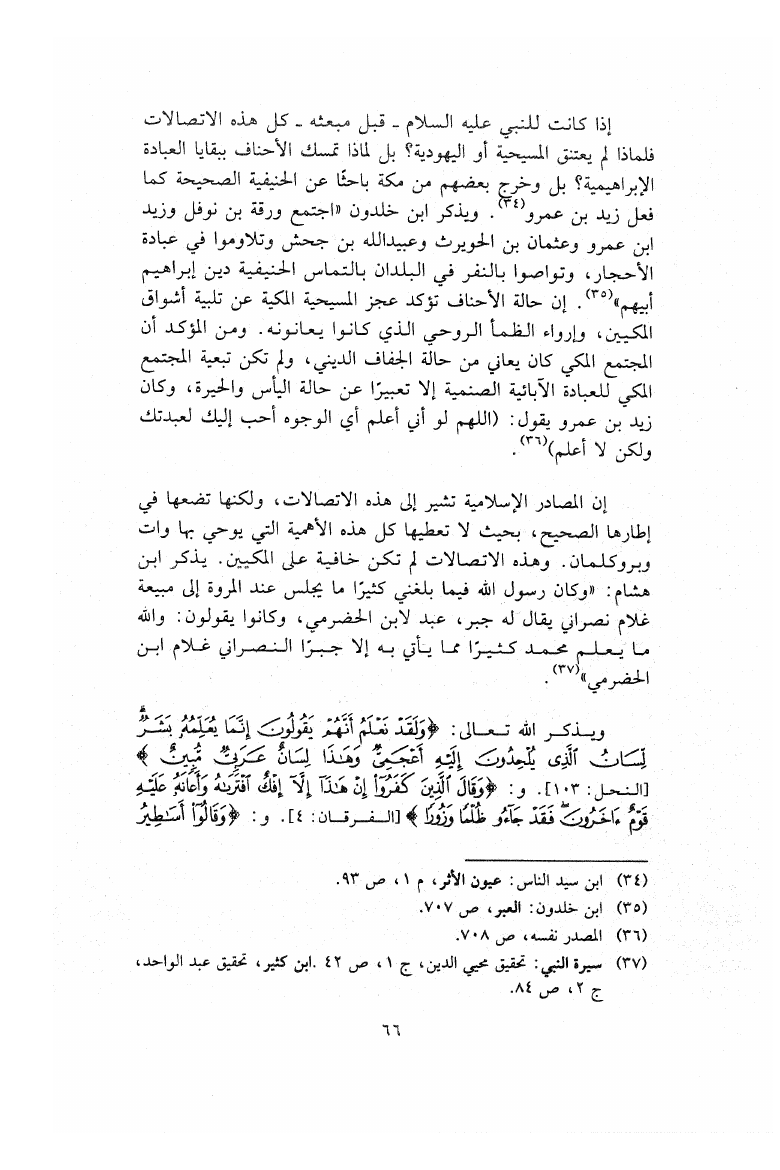 إذا كانت للنبي عليه السلام ـ قبل مبعثه ـ كل هذه الاتصالات
فلماذا لم يعتنق المسيحية أو اليهودية؟ بل لماذا تمسك الأحناف ببقايا العبادة
الإبراهيمية؟ بل وخرج بعضهم من مكة باحثًا عن الحنيفية الصحيحة كما
فعل زيد بن عمرو(٣٤). ويذكر ابن خلدون «اجتمع ورقة بن نوفل وزيد
ابن عمرو وعثمان بن الحويرث وعبيدالله بن جحش وتلاوموا في عبادة
الأحجار، وتواصوا بالنفر في البلدان بالتماس الحنيفية دين إبراهيم
أبيهم»(٣٥). إن حالة الأحناف تؤكد عجز المسيحية المكية عن تلبية أشواق
المكيين، وإرواء الظمأ الروحي الذي كانوا يعانونه. ومن المؤكد أن
المجتمع المكي كان يعاني من حالة الجفاف الديني، ولم تكن تبعية المجتمع
المكي للعبادة الآبائية الصنمية إلا تعبيرًا عن حالة اليأس والحيرة، وكان
زيد بن عمرو يقول: (اللهم لو أني أعلم أي الوجوه أحب إليك لعبدتك
ولكن لا أعلم)(٣٦).
إن المصادر الإسلامية تشير إلى هذه الاتصالات، ولكنها تضعها في
إطارها الصحيح، بحيث لا تعطيها كل هذه الأهمية التي يوحي بها وات
وبروكلمان. وهذه الاتصالات لم تكن خافية على المكيين. يذكر ابن
هشام: «وكان رسول الله فيما بلغني كثيرًا ما يجلس عند المروة إلى مبيعة
غلام نصراني يقال له جبر، عبد لابن الحضرمي، وكانوا يقولون: والله
ما يعلم محمد كثيرًا مما يأتي به إلا جبرًا النصراني غلام ابن
الحضرمي»(٣٧).
ويذكر الله تعالى: ﴿وَلَقَدْ نَعْلَمُ أَنَّهُمْ يَقُولُونَ إِنَّمَا يُعَلِّمُهُ بَشَرٌ
لِسَانُ الَّذِى يُلْحِدُونَ إِلَيْهِ أَعْجَمِيٌّ وَهَٰذَا لِسَانٌ عَرَبِيٌّ مُّبِينٌ﴾
[النحل: ١٠٣]. و: ﴿وَقَالَ الَّذِينَ كَفَرُوٓا إِنْ هَٰذَآ إِلَّآ إِفْكٌ افْتَرَىٰهُ وَأَعَانَهُ عَلَيْهِ
قَوْمٌ ءَاخَرُونَ ۖ فَقَدْ جَآءُو ظُلْمًا وَزُورًا﴾ [الفرقان: ٤]. و: ﴿وَقَالُوٓا أَسَٰطِيرُ
(٣٤) ابن سيد الناس: عيون الأثر، م ١، ص ٩٣.
(٣٥) ابن خلدون: العبر، ص ٧٠٧.
(٣٦) المصدر نفسه، ص ٧٠٨.
(٣٧) سيرة النبي: تحقيق محيي الدين، ج ١، ص ٤٢. ابن كثير، تحقيق عبد الواحد،
ج ٢، ص ٨٤.
٦٦